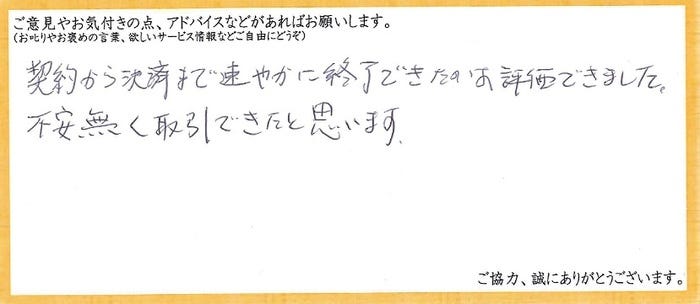 ご意見やお気付きの点、アドバイスなどがあればお願いします。
(お叱りやお褒めの言葉、欲しいサービス情報などご自由にどうぞ)
契約から決済まで速やかに終了できたのは評価できました。
不安無く取引できたと思います.
ご協力、誠にありがとうございます。